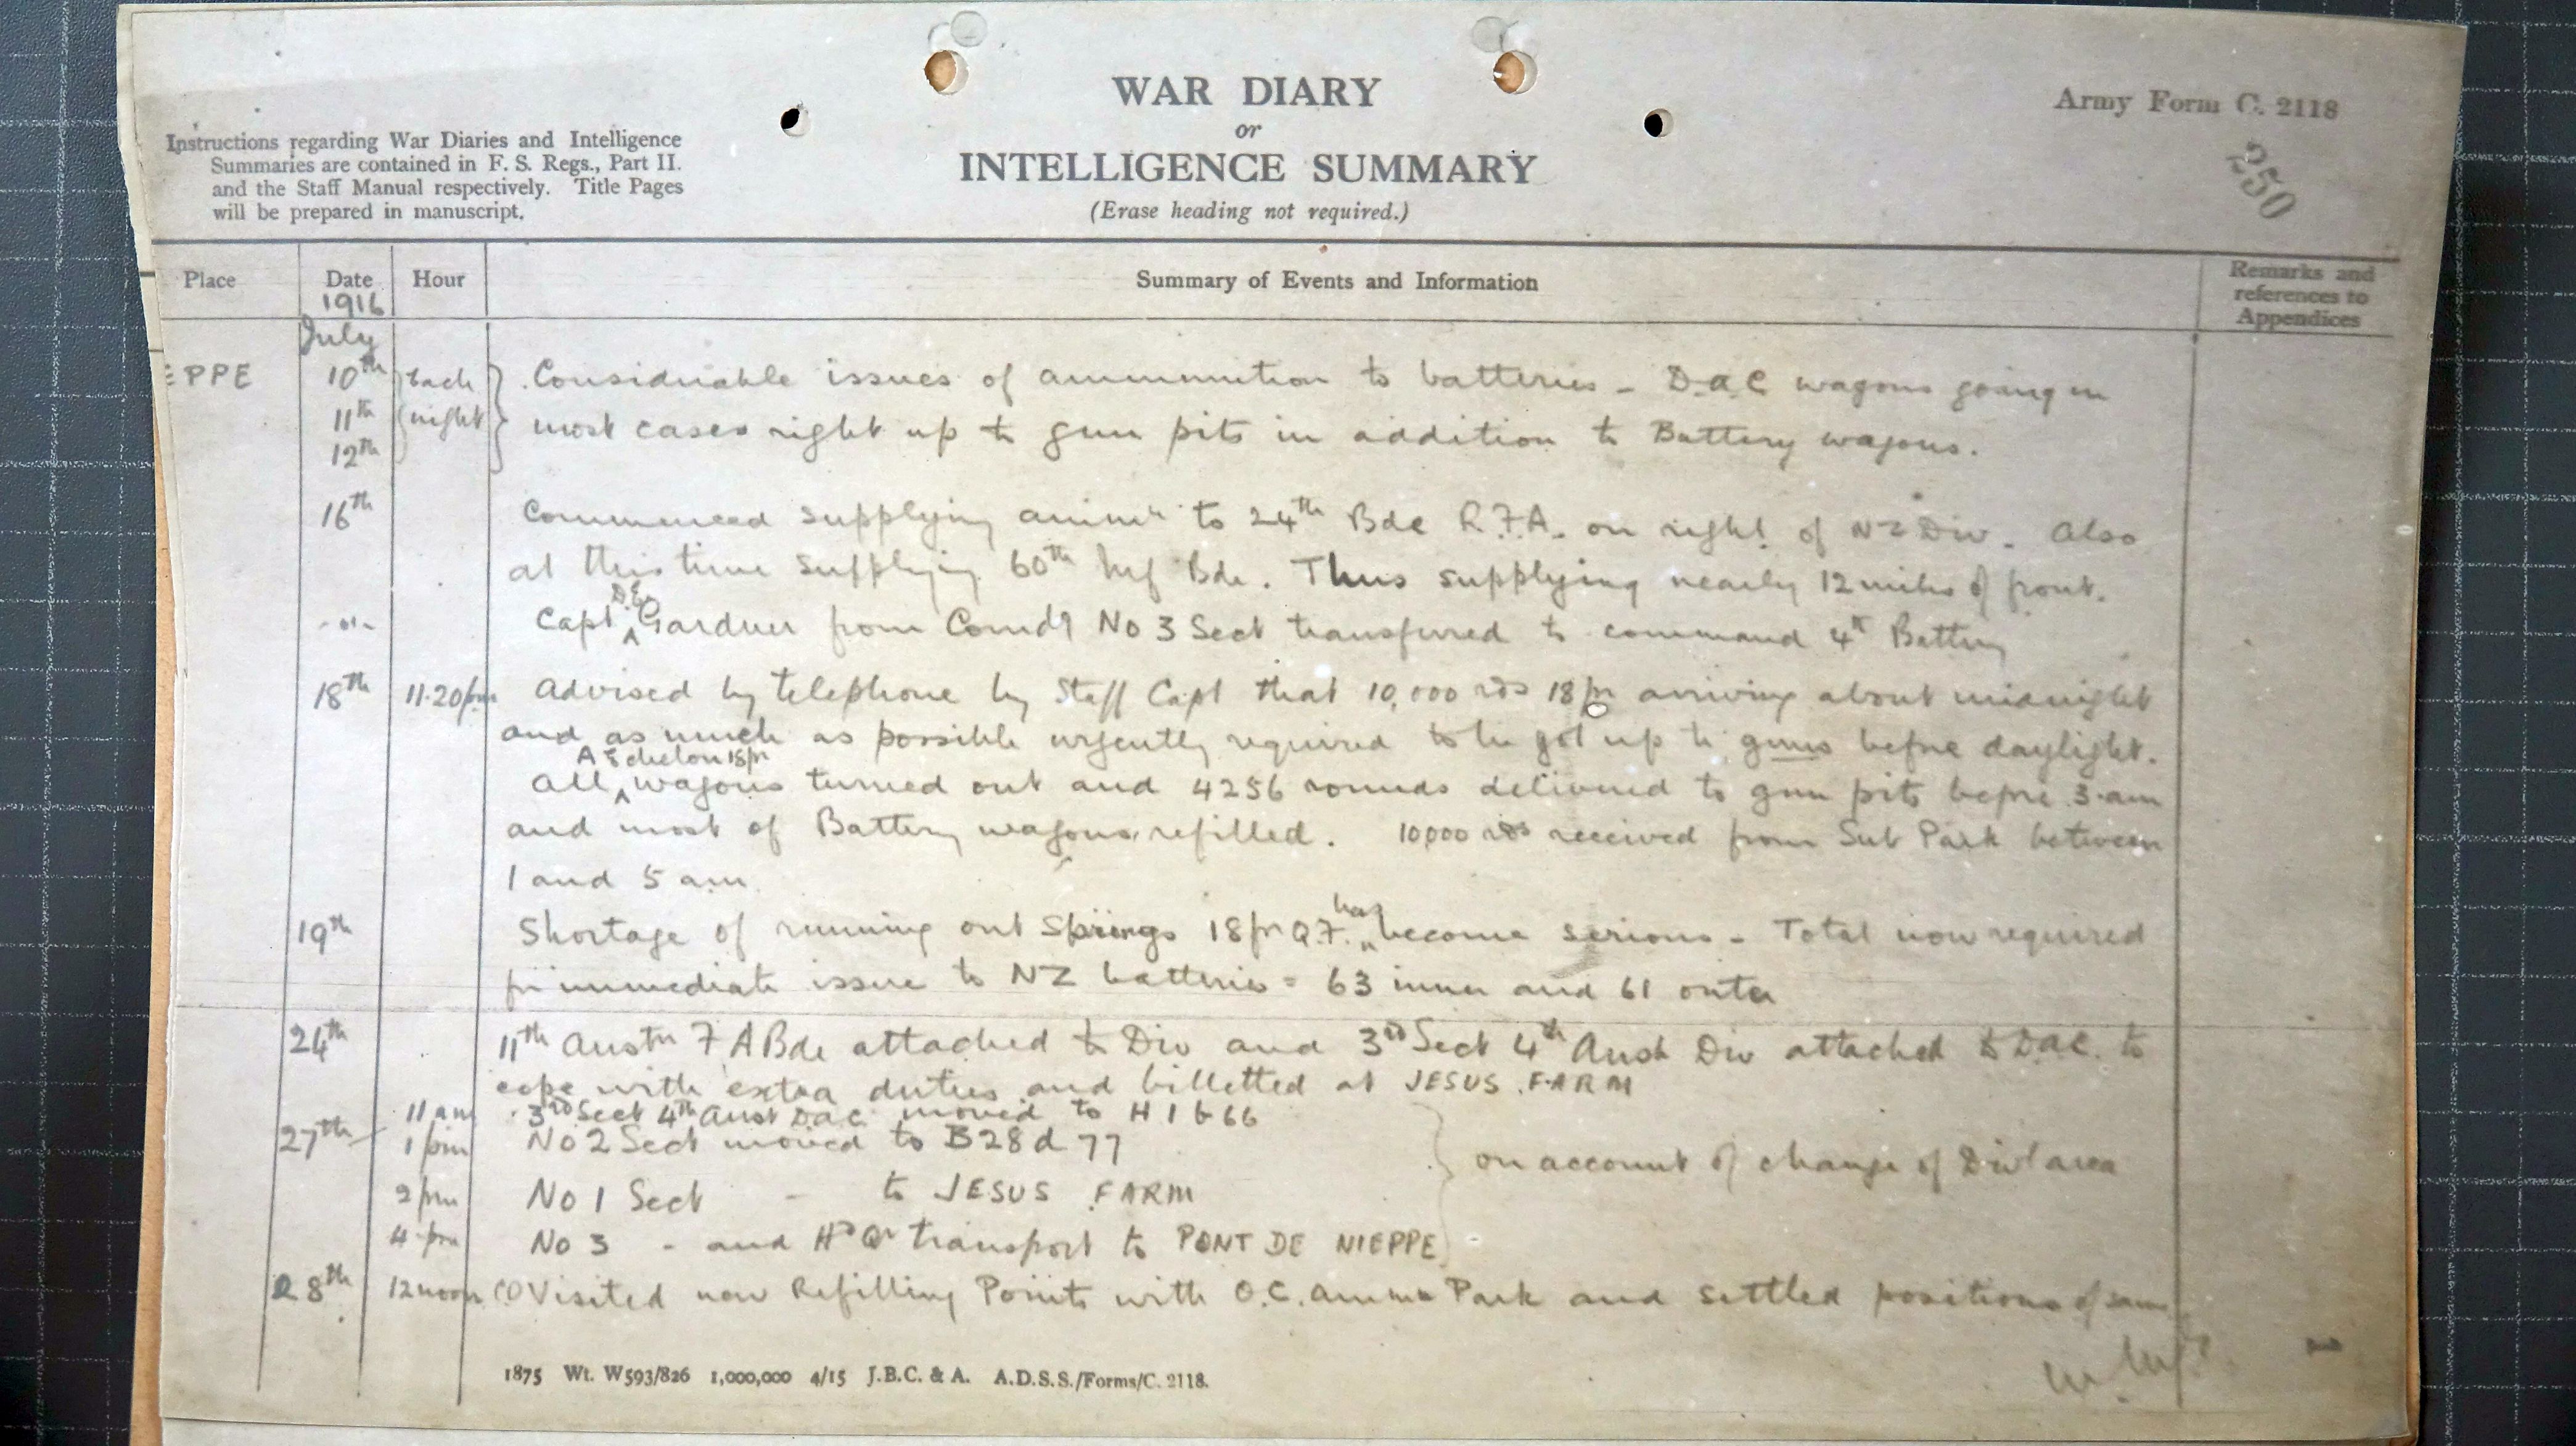 WAR DIARY
or
INTELLIGENCE SUMMARY
(Erase heading not required.)
Army Form C. 2118
250
Instructions regarding War Diaries and Intelligence
Summaries are contained in F. S. Regs., Part II.
and the Staff Manual respectively. Title Pages
will be prepared in manuscript.
Place Date Hour Summary of Events and Information Remarks and references to Appendices
1916
July
EPPE 10th each Considerable issues of ammunition to batteries - D.A.C wagons going in
11th night most cases right up to gun pits in addition to Battery wagons.
12th
16th Commenced supplying ammn to 24th Bde R.F.A. on right of NZ Div. Also
at this time supplying 60th Inf Bde. Thus supplying nearly 12 miles of front.
-"- Capt D.E. Gardner from Comdg No 3 Sect transferred to command 4th Battery
18th 11.20pm Advised by telephone by Staff Capt that 10,000 rds 18pr arriving about midnight
and as much as possible urgently required to be got up to guns before daylight.
All A Echelon 18pr wagons turned out and 4256 rounds delivered to gun pits before 3.am
and most of Battery wagons refilled. 10,000 rds received from Sub Park between
1 and 5 am.
19th Shortage of running out Springs 18pr Q.F. has become serious - Total now required
for immediate issue to NZ batteries = 63 inner and 61 outer
24th 11th Austn F A Bde attached to Div and 3rd Sect 4th Aust Div attached to DAC. to
cope with extra duties and billetted at JESUS FARM
11 am 3rd Sect 4th Aust DAC moved to H 1 b 66
27th 1 pm No 2 Sect moved to B28d 77
on account of change of Divl area
2 pm No 1 Sect - to JESUS FARM
4 pm No 3 - and Hd Qr transport to PONT DE NIEPPE
28th 12 noon CO Visited new Refilling Points with O.C. Ammn Park and settled positions of same
1875 Wt. W593/826 1,000,000 4/15 J.B.C. & A. A.D.S.S./Forms/C. 2118.